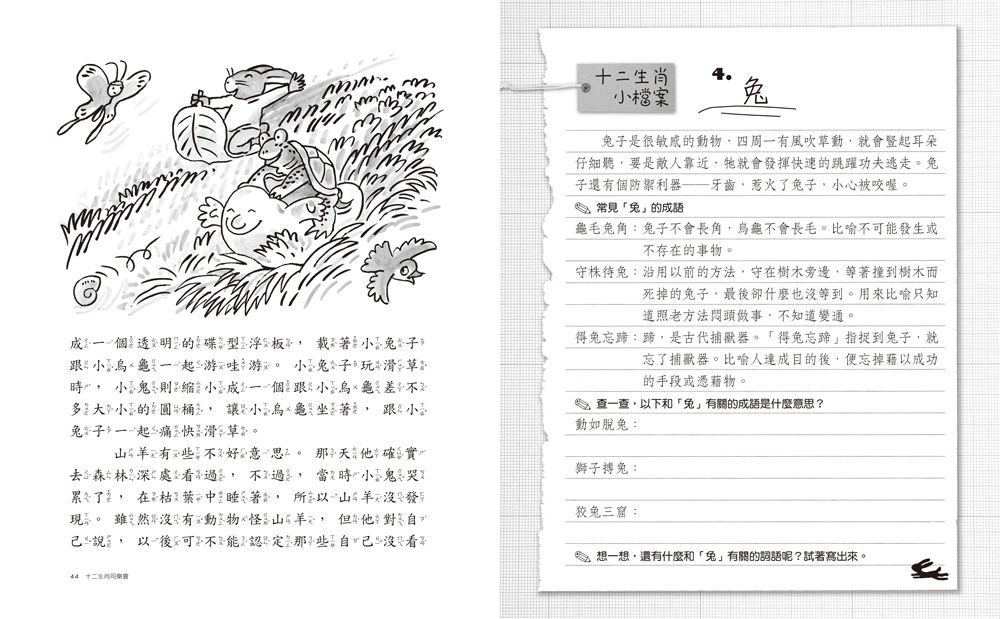 成一個透明的碟型浮板，載著小兔子
跟小烏龜一起游哇游。小兔子玩滑草
時，小鬼則縮小成一個跟小烏龜差不
多大小的圓桶，讓小烏龜坐著，跟小
兔子一起痛快滑草。
山羊有些不好意思。那天他確實
去森林深處看過，不過，當時小鬼哭
累了，在枯葉中睡著，所以山羊沒發
現。雖然沒有動物怪山羊，但他對自
己說，以後可不能認定那些自己沒看
44 十二生肖同樂會
十二生肖
小檔案
4. 兔
兔子是很敏感的動物，四周一有風吹草動，就會豎起耳朵
仔細聽，要是敵人靠近，牠就會發揮快速的跳躍功夫逃走。兔
子還有個防禦利器——牙齒，惹火了兔子，小心被咬喔。
常見「兔」的成語
龜毛兔角：兔子不會長角，烏龜不會長毛。比喻不可能發生或
不存在的事物。
守株待兔：沿用以前的方法，守在樹木旁邊，等著撞到樹木而
死掉的兔子，最後卻什麼也沒等到。用來比喻只知
道照老方法悶頭做事，不知道變通。
得兔忘蹄：蹄，是古代捕獸器。「得兔忘蹄」指捉到兔子，就
忘了捕獸器。比喻人達成目的後，便忘掉藉以成功
的手段或憑藉物。
查一查，以下和「兔」有關的成語是什麼意思？
動如脫兔：
獅子搏兔：
狡兔三窟：
想一想，還有什麼和「兔」有關的詞語呢？試著寫出來。